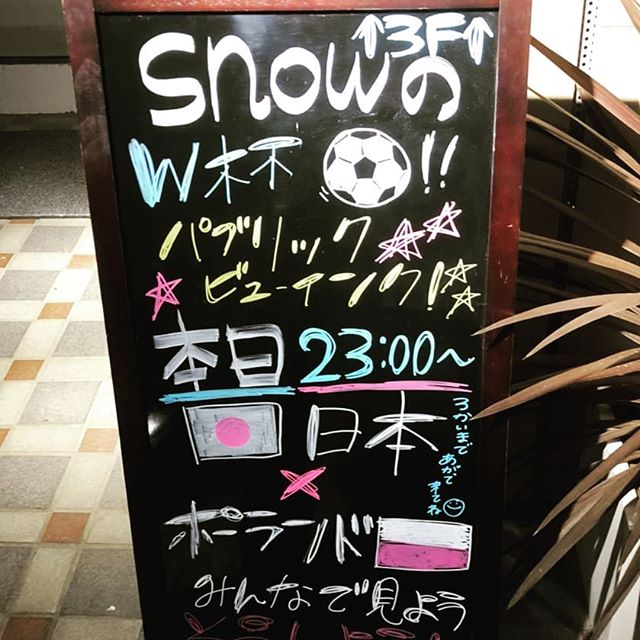 ↑3F↑
snowの
W杯!!
パブリック
ビューイング!
本日 23:00〜
日本
×
ポーランド
3かいまで
あがって
きてね
みんなで見よう